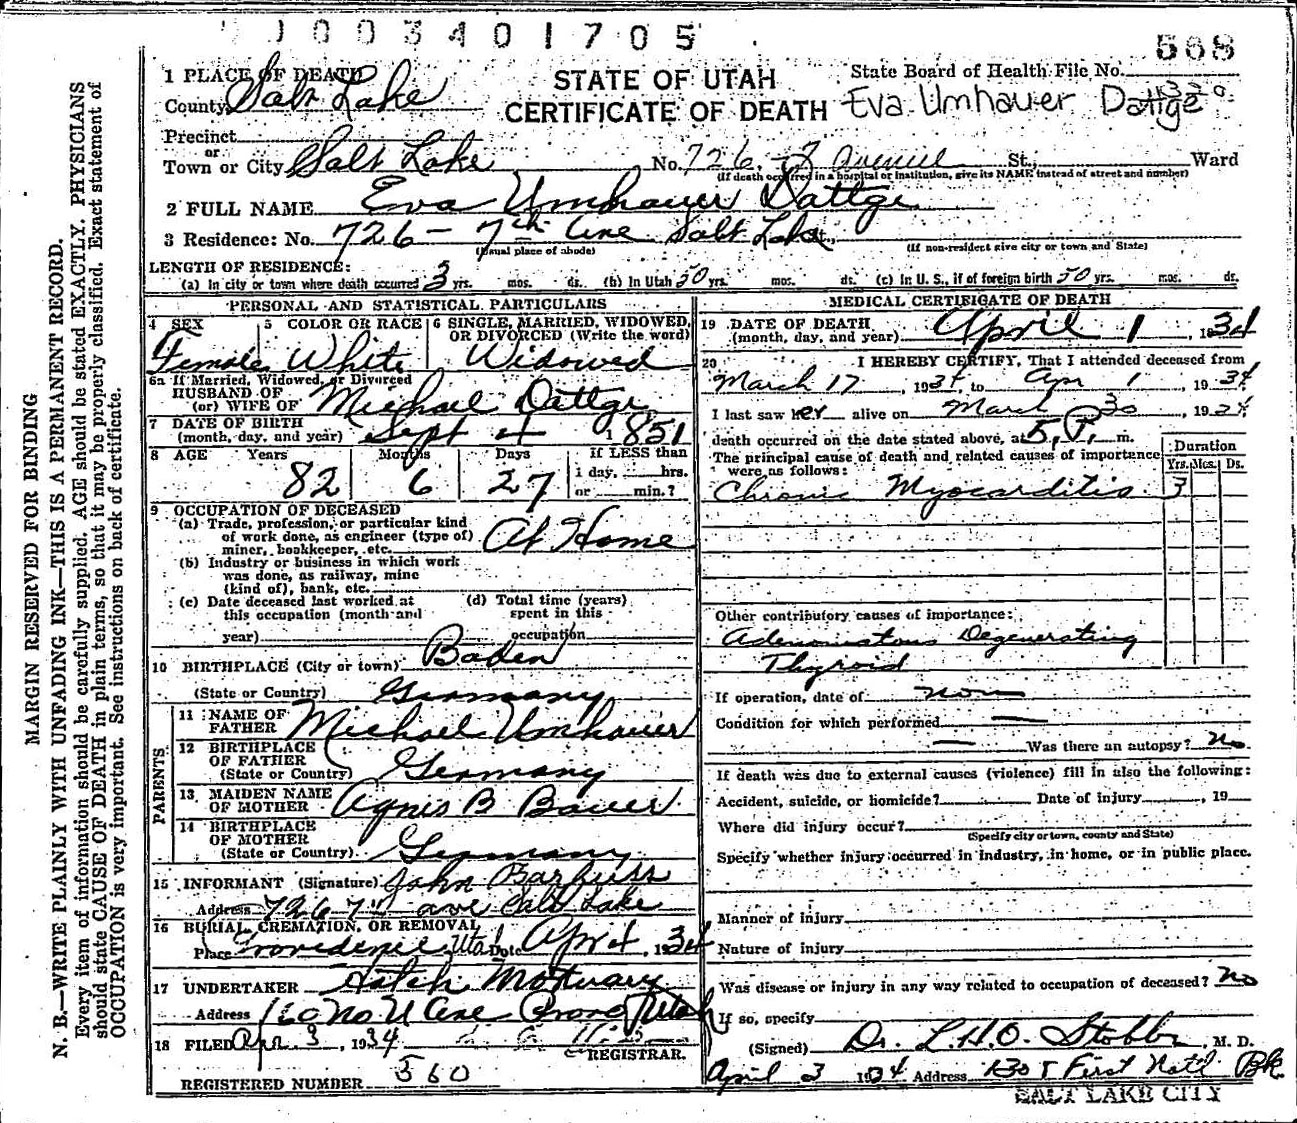 1003401705
568
1 PLACE OF DEATH
County Salt Lake
STATE OF UTAH
CERTIFICATE OF DEATH
State Board of Health File No.
Eva Umhauer Dattge
Precinct
or
Town or City Salt Lake No. 726 - 7 avenue St., Ward
(If death occurred in a hospital or institution, give its NAME instead of street and number)
2 FULL NAME Eva Umhauer Dattge
3 Residence: No. 726 - 7th Ave Salt Lake St.,
(Usual place of abode) (If non-resident give city or town and State)
LENGTH OF RESIDENCE:
(a) In city or town where death occurred 3 yrs. mos. ds. (b) In Utah 50 yrs. mos. ds. (c) In U. S., if of foreign birth 50 yrs. mos. ds.
PERSONAL AND STATISTICAL PARTICULARS
4 SEX Female
5 COLOR OR RACE White
6 SINGLE, MARRIED, WIDOWED, OR DIVORCED (Write the word) Widowed
6a If Married, Widowed, or Divorced
HUSBAND OF
(or) WIFE OF Michael Dattge
7 DATE OF BIRTH
(month, day, and year) Sept 4 1851
8 AGE Years Months Days If LESS than
82 6 27 1 day, hrs.
or min.?
9 OCCUPATION OF DECEASED
(a) Trade, profession, or particular kind
of work done, as engineer (type of)
miner, bookkeeper, etc. At Home
(b) Industry or business in which work
was done, as railway, mine
(kind of), bank, etc.
(c) Date deceased last worked at
this occupation (month and
year)
(d) Total time (years)
spent in this
occupation
10 BIRTHPLACE (City or town) Baden
(State or Country) Germany
PARENTS
11 NAME OF
FATHER Michael Umhauer
12 BIRTHPLACE
OF FATHER
(State or Country) Germany
13 MAIDEN NAME
OF MOTHER Agnis B Bauer
14 BIRTHPLACE
OF MOTHER
(State or Country) Germany
15 INFORMANT (Signature) John
Address 726 7th ave Salt Lake
16 BURIAL, CREMATION, OR REMOVAL
Place Providence Utah Date Apr 4, 1934
17 UNDERTAKER Hatch Mortuary
Address 160 No U Ave Provo Utah
18 FILED Apr. 3, 1934
REGISTRAR.
REGISTERED NUMBER 560
MEDICAL CERTIFICATE OF DEATH
19 DATE OF DEATH
(month, day, and year) April 1, 1934
20 I HEREBY CERTIFY, That I attended deceased from
March 17, 1934, to Apr 1, 1934
I last saw her alive on March 30, 1934
death occurred on the date stated above, at 5 P. m.
The principal cause of death and related causes of importance
were as follows:
Duration
Yrs. Mos. Ds.
Chronic Myocarditis 3
Other contributory causes of importance:
Adenomatous Degenerating
Thyroid
If operation, date of non
Condition for which performed
Was there an autopsy? No
If death was due to external causes (violence) fill in also the following:
Accident, suicide, or homicide? Date of injury, 19
Where did injury occur?
(Specify city or town, county and State)
Specify whether injury occurred in industry, in home, or in public place.
Manner of injury
Nature of injury
Was disease or injury in any way related to occupation of deceased? No
If so, specify
(Signed) Dr. L.H.O. Stobbe, M. D.
April 3 1934 Address First Natl Bk
SALT LAKE CITY
MARGIN RESERVED FOR BINDING
N. B.—WRITE PLAINLY WITH UNFADING INK—THIS IS A PERMANENT RECORD.
Every item of information should be carefully supplied. AGE should be stated EXACTLY. PHYSICIANS
should state CAUSE OF DEATH in plain terms, so that it may be properly classified. Exact statement of
OCCUPATION is very important. See instructions on back of certificate.